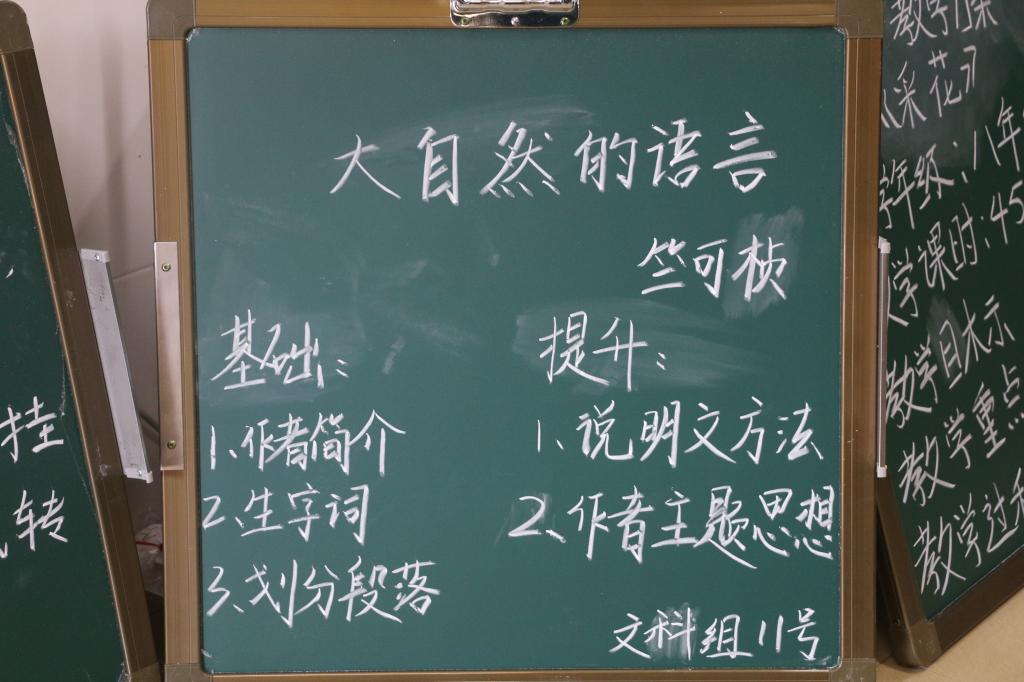 大自然的语言
竺可桢
基础:
1、作者简介
2、生字词
3、划分段落
提升:
1、说明文方法
2、作者主题思想
文科组11号
挂
转
教学课
《采花》
学年级:八年
学课时:45
教学目标
教学重点
教学过